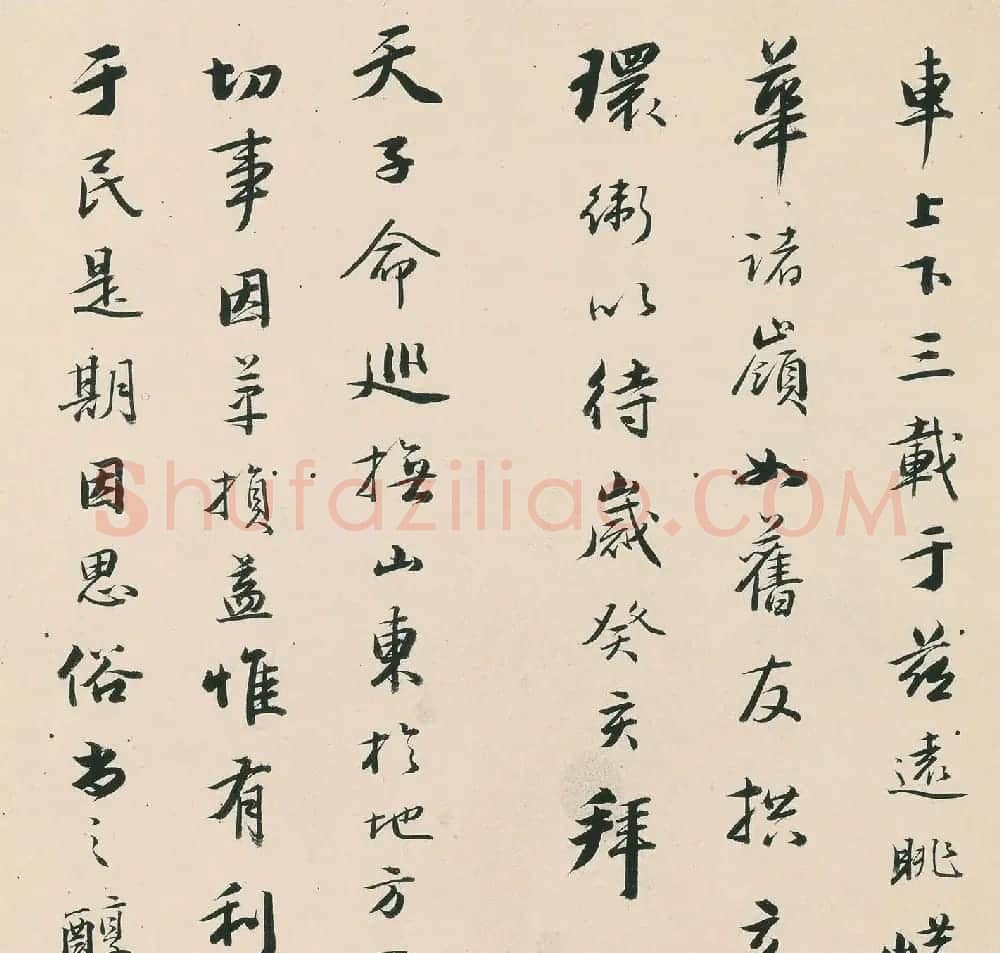 車上下三載于茲遠眺
華諸嶺如舊友拱立
環衛以待歲癸亥拜
天子命巡撫山東於地方
切事因革損益惟有利
于民是期因思俗尚之醇
Shufaziliao.COM